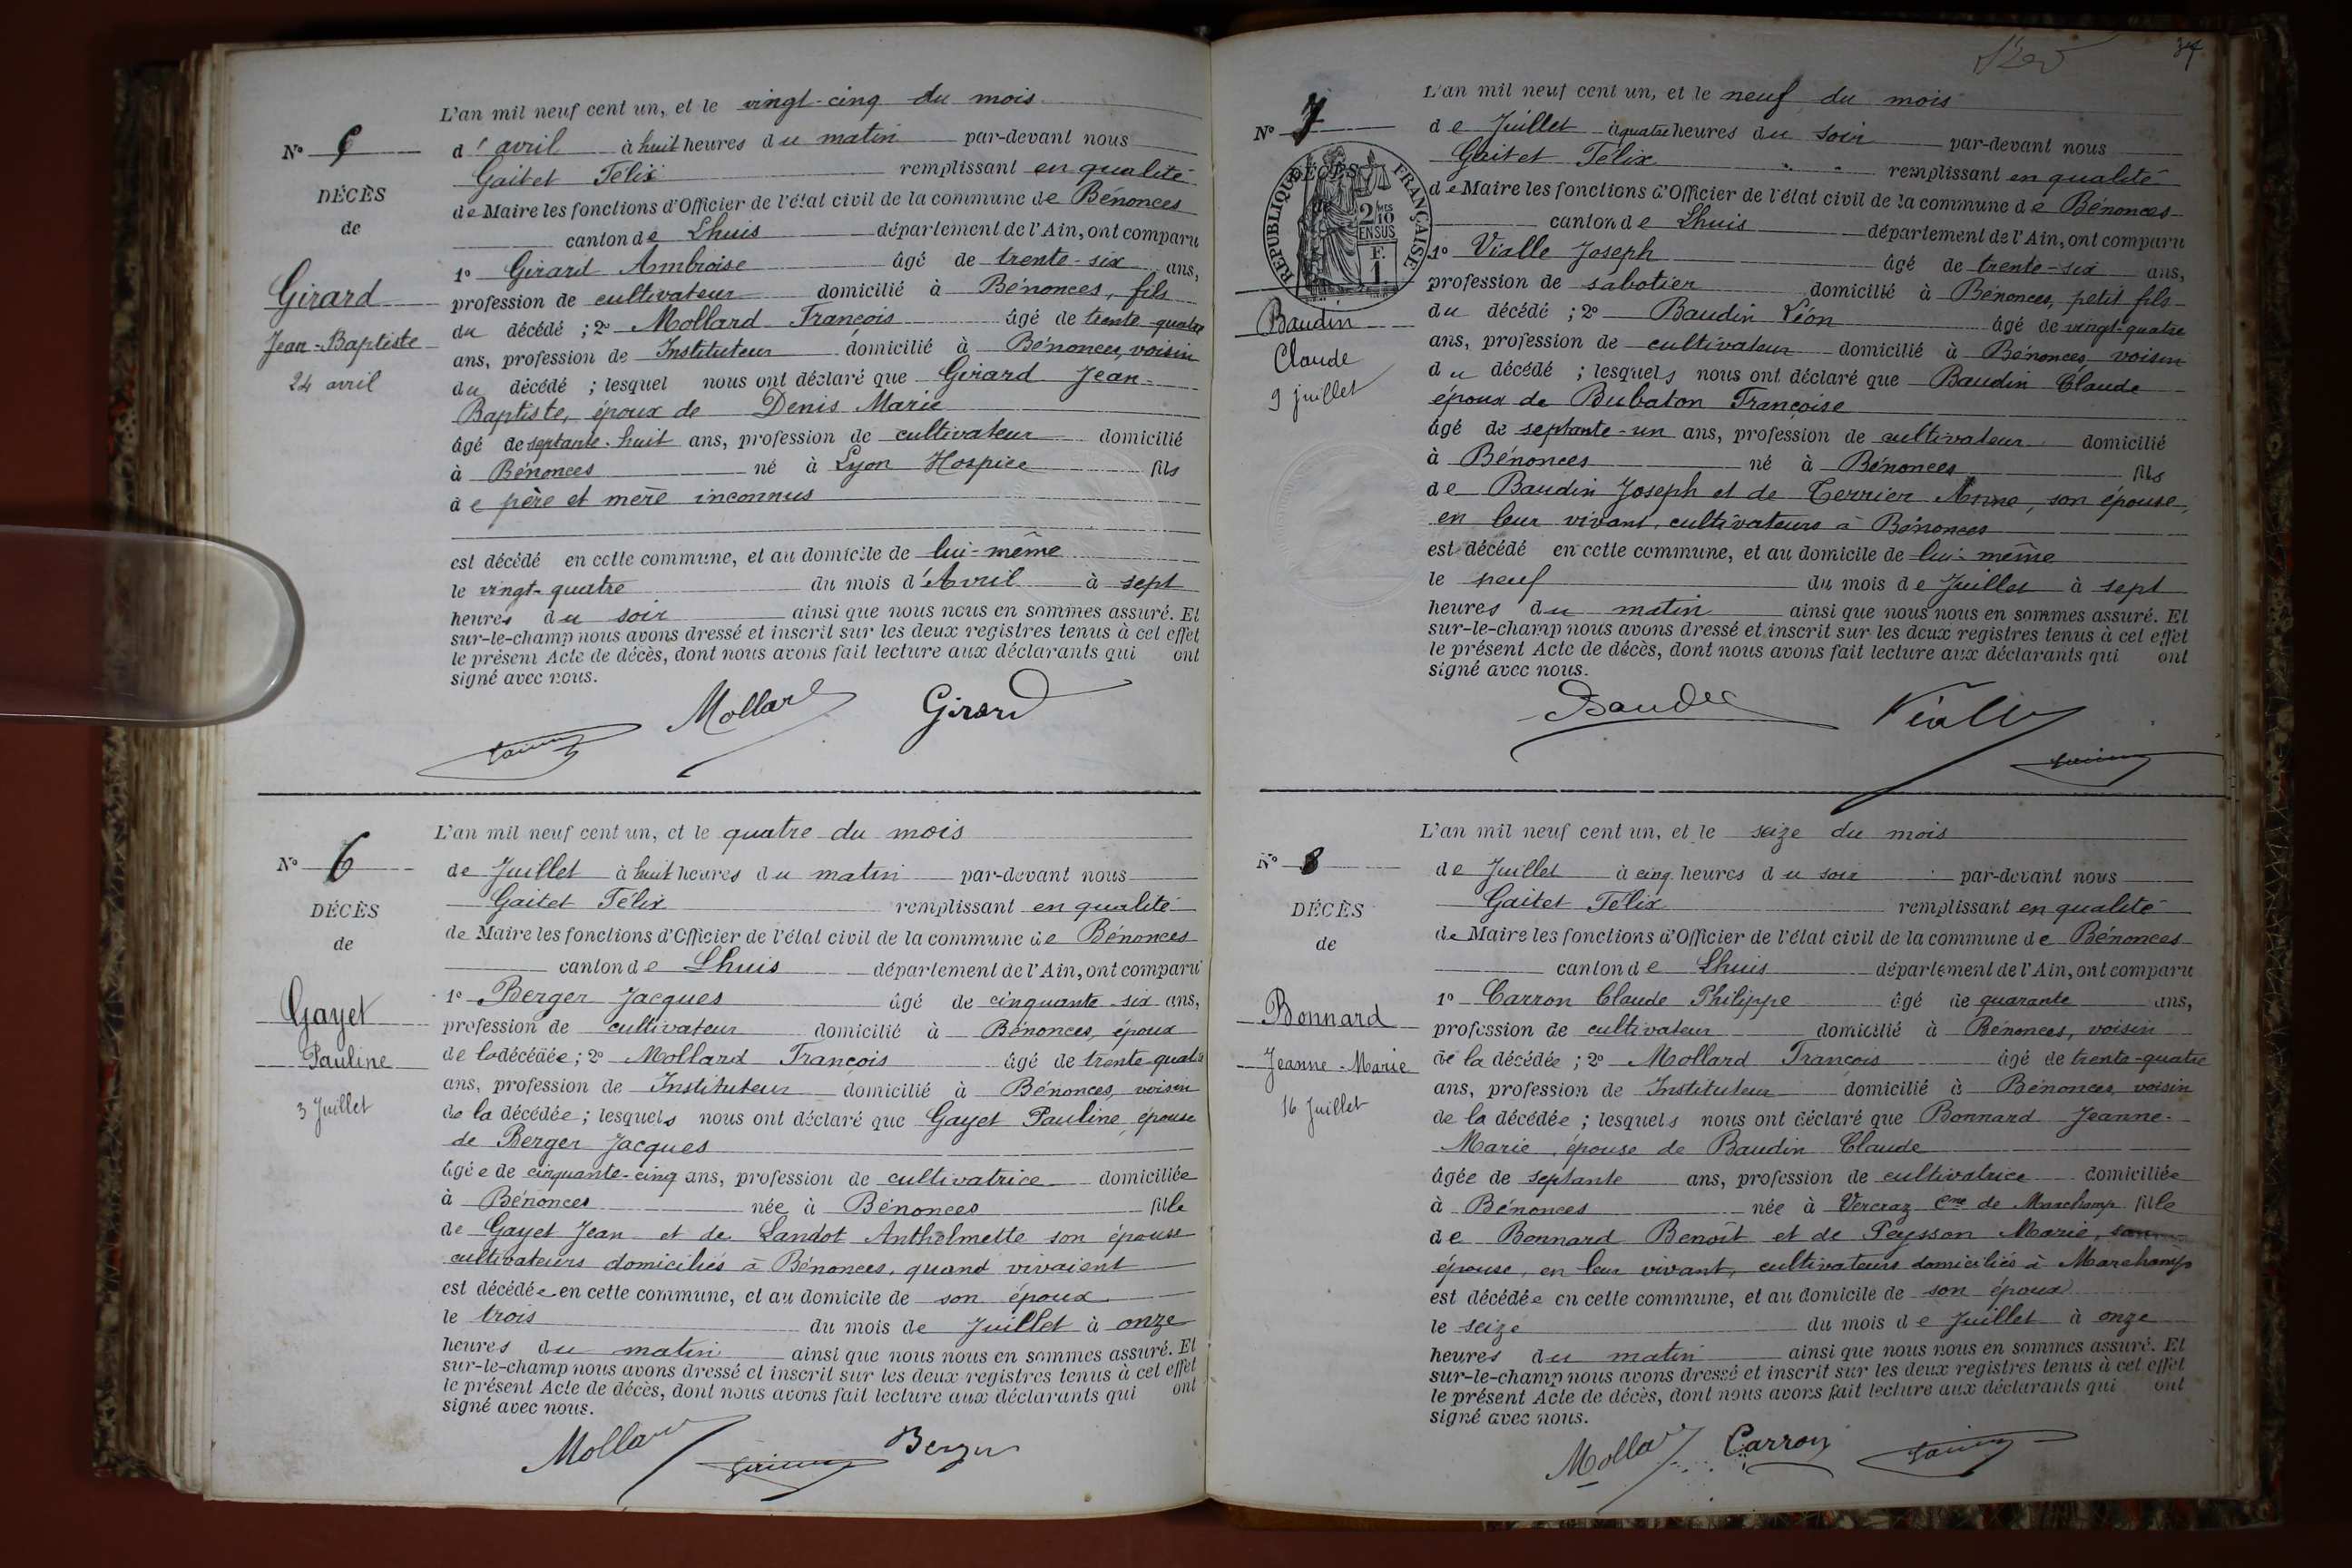 L'an mil neuf cent un, et le vingt-cinq du mois
N° 5
d'avril à huit heures du matin par-devant nous
Gaitet Félix remplissant en qualité
DÉCÈS
de Maire les fonctions d'Officier de l'état civil de la commune de Bénonces
de
canton de Lhuis département de l'Ain, ont comparu
1° Girard Ambroise âgé de trente-six ans,
Girard
profession de cultivateur domicilié à Bénonces, fils
du décédé ; 2° Mollard François âgé de trente-quatre
Jean-Baptiste
ans, profession de Instituteur domicilié à Bénonces, voisin
24 avril
du décédé ; lesquel nous ont déclaré que Girard Jean-
Baptiste, époux de Denis Marie
âgé de septante-huit ans, profession de cultivateur domicilié
à Bénonces né à Lyon Hospice fils
de père et mère inconnus
est décédé en cette commune, et au domicile de lui-même
le vingt-quatre du mois d'Avril à sept
heures du soir ainsi que nous nous en sommes assuré. Et
sur-le-champ nous avons dressé et inscrit sur les deux registres tenus à cet effet
le présent Acte de décès, dont nous avons fait lecture aux déclarants qui ont
signé avec nous.
Mollard Girard
L'an mil neuf cent un, et le quatre du mois
N° 6
de Juillet à huit heures du matin par-devant nous
Gaitet Félix remplissant en qualité
DÉCÈS
de Maire les fonctions d'Officier de l'état civil de la commune de Bénonces
de
canton de Lhuis département de l'Ain, ont comparu
1° Berger Jacques âgé de cinquante-six ans,
Gayet
profession de cultivateur domicilié à Bénonces, époux
Pauline
de la décédée ; 2° Mollard François âgé de trente-quatre
ans, profession de Instituteur domicilié à Bénonces, voisin
3 Juillet
de la décédée ; lesquels nous ont déclaré que Gayet Pauline, épouse
de Berger Jacques
âgée de cinquante-cinq ans, profession de cultivatrice domiciliée
à Bénonces née à Bénonces fille
de Gayet Jean et de Landot Anthelmette son épouse
cultivateurs domiciliés à Bénonces, quand vivaient
est décédée en cette commune, et au domicile de son époux
le trois du mois de Juillet à onze
heures du matin ainsi que nous nous en sommes assuré. Et
sur-le-champ nous avons dressé et inscrit sur les deux registres tenus à cet effet
le présent Acte de décès, dont nous avons fait lecture aux déclarants qui ont
signé avec nous.
Mollard Berger
L'an mil neuf cent un, et le neuf du mois
N° 7
de Juillet à quatre heures du soir par-devant nous
Gaitet Félix remplissant en qualité
DÉCÈS
RÉPUBLIQUE FRANÇAISE
2/10 EN SUS
F. 1
de Maire les fonctions d'Officier de l'état civil de la commune de Bénonces
canton de Lhuis département de l'Ain, ont comparu
1° Vialle Joseph âgé de trente-six ans,
profession de sabotier domicilié à Bénonces, petit fils
Baudin
du décédé ; 2° Baudin Léon âgé de vingt-quatre
Claude
ans, profession de cultivateur domicilié à Bénonces, voisin
9 juillet
du décédé ; lesquels nous ont déclaré que Baudin Claude
époux de Bubaton Françoise
âgé de septante-un ans, profession de cultivateur domicilié
à Bénonces né à Bénonces fils
de Baudin Joseph et de Terrier Anne, son épouse,
en leur vivant, cultivateurs à Bénonces
est décédé en cette commune, et au domicile de lui-même
le neuf du mois de Juillet à sept
heures du matin ainsi que nous nous en sommes assuré. Et
sur-le-champ nous avons dressé et inscrit sur les deux registres tenus à cet effet
le présent Acte de décès, dont nous avons fait lecture aux déclarants qui ont
signé avec nous.
L'an mil neuf cent un, et le seize du mois
N° 8
de Juillet à cinq heures du soir par-devant nous
Gaitet Félix remplissant en qualité
DÉCÈS
de Maire les fonctions d'Officier de l'état civil de la commune de Bénonces
de
canton de Lhuis département de l'Ain, ont comparu
1° Carron Claude Philippe âgé de quarante ans,
Bonnard
profession de cultivateur domicilié à Bénonces, voisin
Jeanne-Marie
de la décédée ; 2° Mollard François âgé de trente-quatre
ans, profession de Instituteur domicilié à Bénonces, voisin
16 Juillet
de la décédée ; lesquels nous ont déclaré que Bonnard Jeanne-
Marie, épouse de Baudin Claude
âgée de septante ans, profession de cultivatrice domiciliée
à Bénonces née à Vercraz Cne de Marchamp fille
de Bonnard Benoît et de Peysson Marie, son
épouse, en leur vivant, cultivateurs domiciliés à Marchamp
est décédée en cette commune, et au domicile de son époux
le seize du mois de Juillet à onze
heures du matin ainsi que nous nous en sommes assuré. Et
sur-le-champ nous avons dressé et inscrit sur les deux registres tenus à cet effet
le présent Acte de décès, dont nous avons fait lecture aux déclarants qui ont
signé avec nous.
Mollard Carron